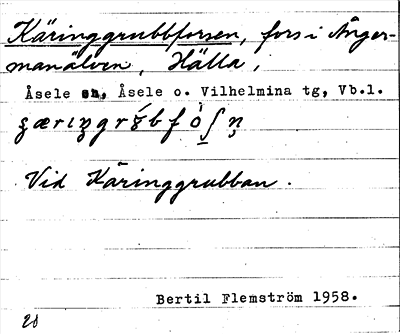 Käringgrubbforsen, fors i Ånger-
manälven, Hälla,
Åsele sn, Åsele o. Vilhelmina tg, Vb.l.
Vid Käringgrubban.
Bertil Flemström 1958.
20